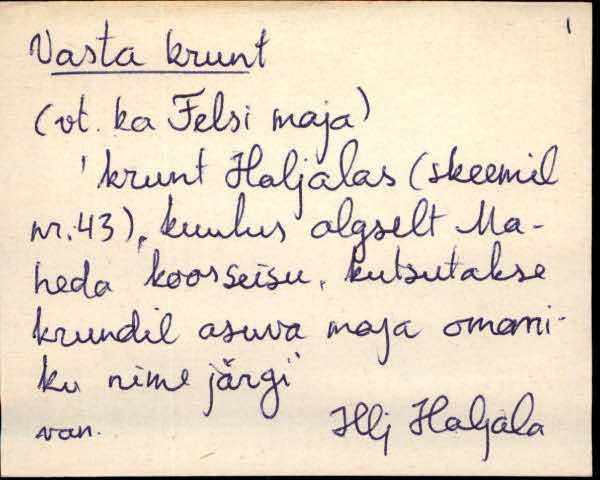 1
Vasta krunt
(vt. ka Felsi maja)
'krunt Haljalas (skeemil
nr. 43), kuulus algselt Ma-
heda koosseisu, kutsutakse
krundil asuva maja omani-
ku nime järgi'
van. Hlj Haljala